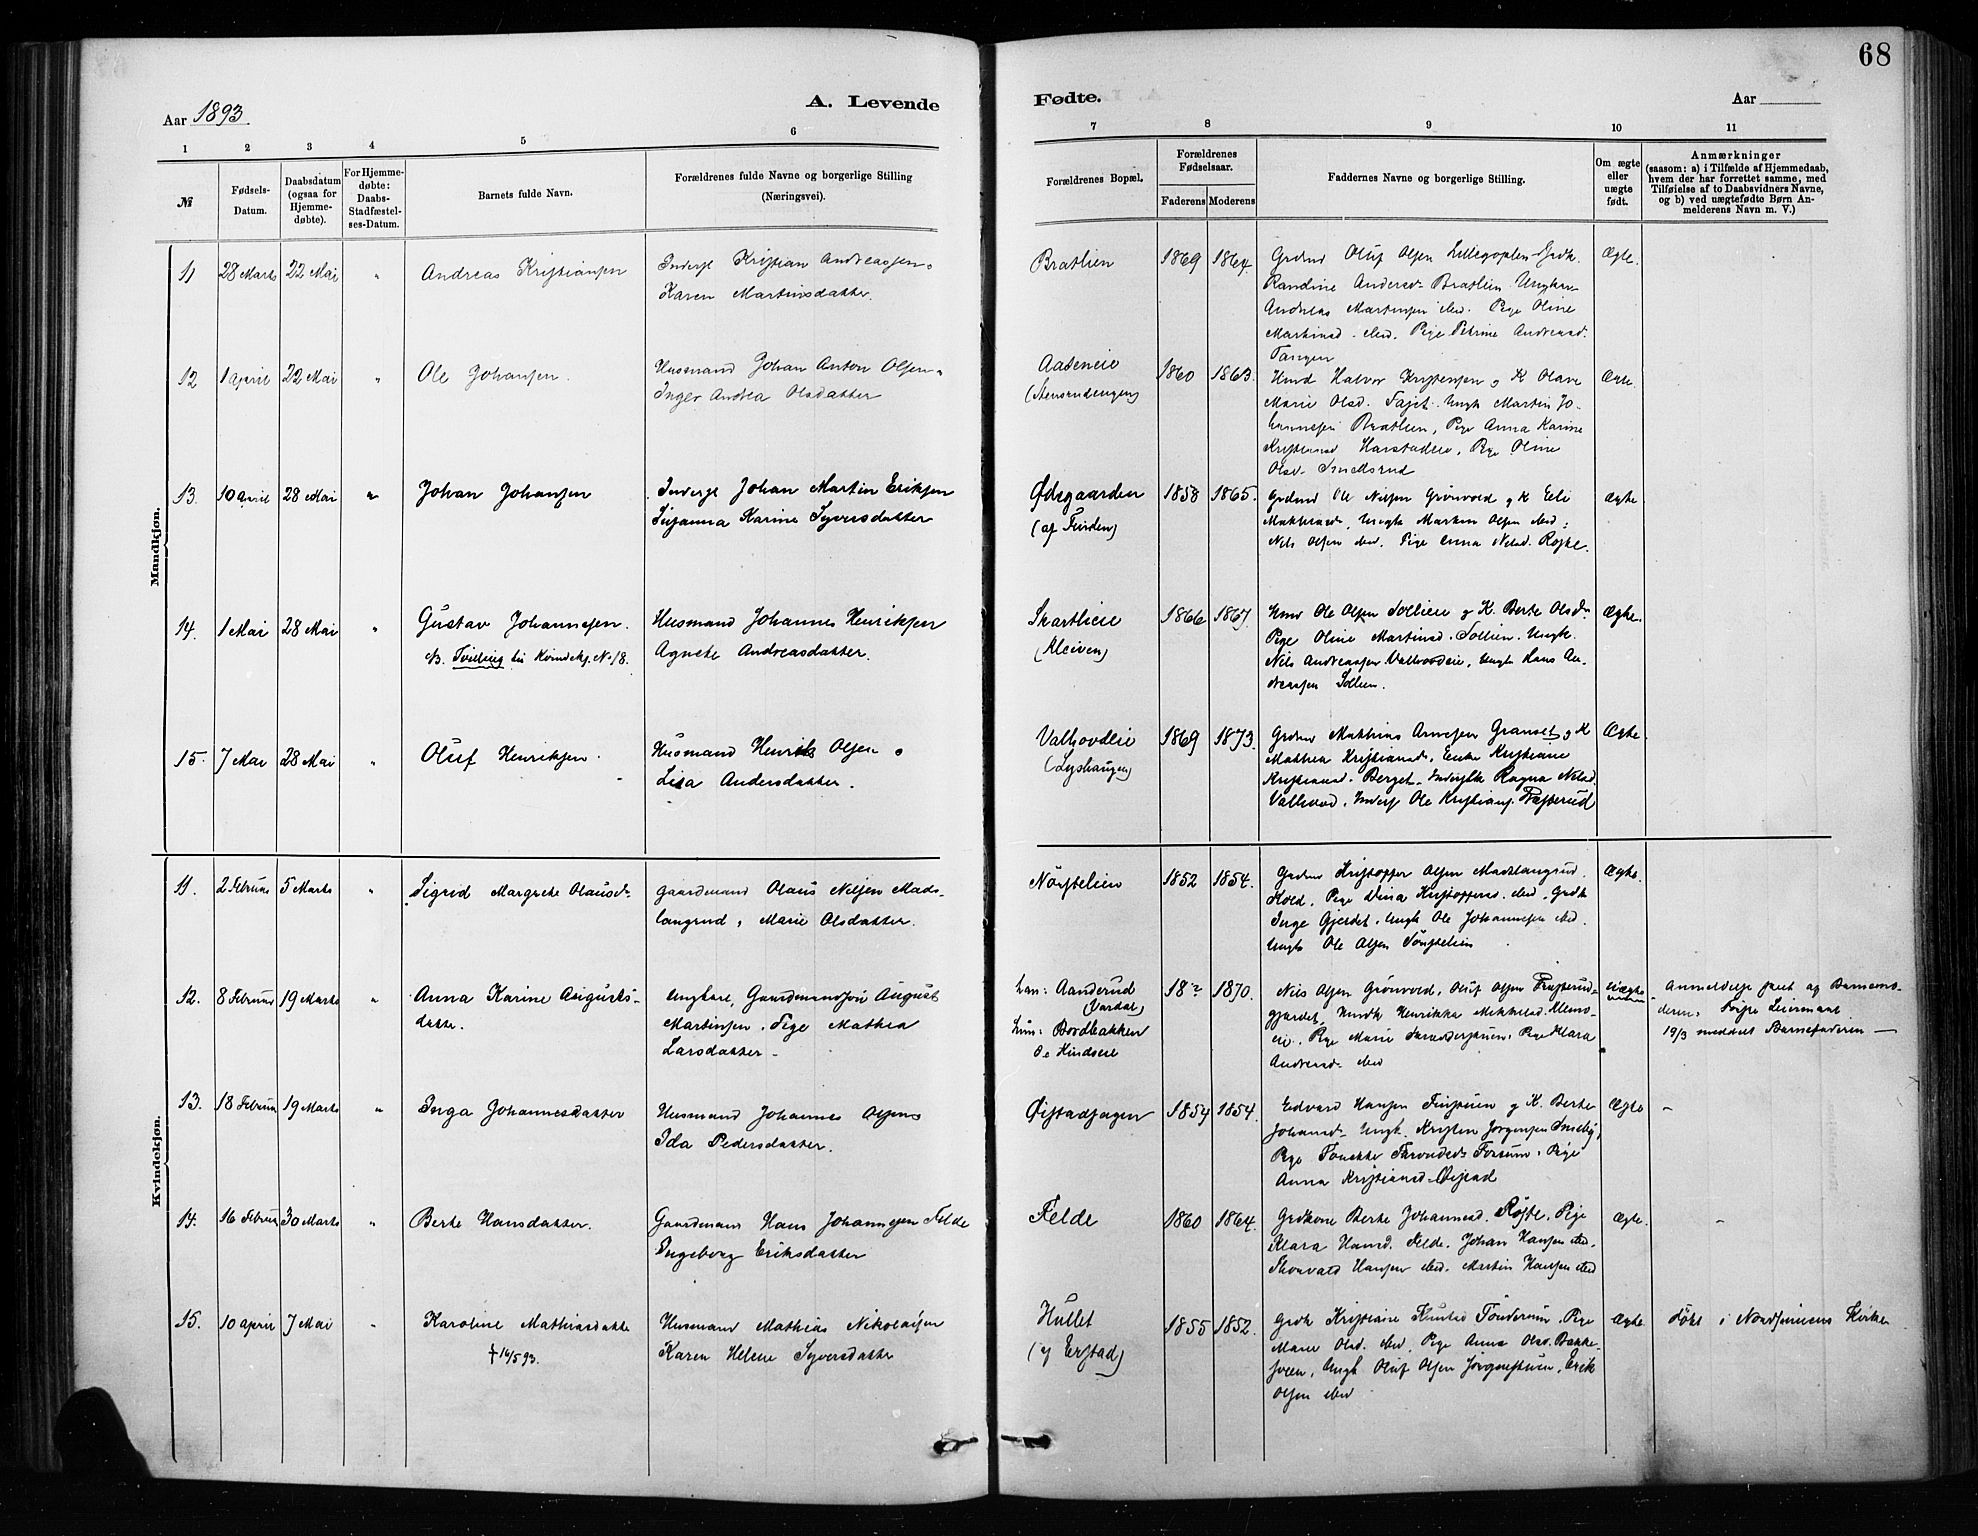 68
Aar 1893.
A. Levende
Fødte.
Aar
1 2 3 4 5 6
7 8 9 10 11
№
Fødsels-Datum.
Daabsdatum (ogsaa for Hjemme-døbte).
For Hjemme-døbte: Daabs-Stadfæstel-ses-Datum.
Barnets fulde Navn.
Forældrenes fulde Navne og borgerlige Stilling
(Næringsvei).
Forældrenes Bopæl.
Forældrenes Fødselsaar.
Faderens Moderens
Faddernes Navne og borgerlige Stilling.
Om ægte eller uægte født.
Anmærkninger
(saasom: a) i Tilfælde af Hjemmedaab,
hvem der har forrettet samme, med
Tilføielse af to Daabsvidners Navne,
og b) ved uægtefødte Børn An-
melderens Navn m. V.)
Mandkjøn.
11 28 Marts 22 Mai " Andreas Kristiansen
Inderst Kristian Andreassen o
Karen Martinsdatter.
Bratlien 1869 1864.
Grdmd Oluf Olsen
Randine Andersd. Bratlien Ungkar
Andreas Martinsen ibid. Pige Oline
Martinsd. ibid. Pige Petrine Andreasd.
Tangen
Ægte.
12 1 April 22 Mai " Ole Johansen.
Husmand Johan Anton Olsen o
Inger Andrea Olsdatter
Aaseneie
(Stensrudengen)
1860 1863.
Hmd Halvor Kristensen o K Olave
Marie Olsd. Fajet. Ungk Martin Jo-
hannesen Bratlien, Pige Anna Karine
Kristensd Harstadeie, Pige Oline
Olsd. Smedsrud
Ægte.
13. 10 April 28 Mai " Johan Johansen
Inderst Johan Martin Eriksen
Susanna Karine Syversdatter
Ødegaarden
(af Finden)
1858 1865.
Grdmd Ole Nilsen Grønvold o K Eli
Mathiasd, Ungk Martin Olsen ibid.
Nils Olsen ibid. Pige Anna Nilsd. Røste.
Ægte
14. 1 Mai 28 Mai " Gustav Johannesen.
NB. Tvilling til Kvindekj. N. 18.
Husmand Johannes Henriksen
Agnete Andreasdatter.
Skartlieie
(Kleiven)
1866 1867.
Hmd Ole Olsen Sollieie o K. Berte Olsd
Pige Oline Martinsd. Sollien. Ungk.
Nils Andreassen Valhovdeie, Ungk Hans An-
dreassen Sollien.
Ægte.
15. 7 Mai 28 Mai " Oluf Henriksen.
Husmand Henrik Olsen o
Lisa Andersdatter.
Valhovdeie
(Lyshaugen)
1869 1873.
Grdmd Mathias Arnesen Granset o K
Mathea Kristiansd, Enke Kristiane
Kristiansd. Berget. Ragna Nilsd.
Valhovd. Inderst Ole Kristians. Præsterud
Ægte.
Kvindekjøn.
11. 2 Februar 5 Marts " Sigrid Margrete Olausd
Gaardmand Olaus Nilsen Mads-
langrud, Marie Olsdatter.
Nørstelien 1852 1854.
Grdmd Kristoffer Olsen Madslangrud
Kold. Pige Dina Kristoffersd. ibid. Grdk
Inge Gjerdet. Ungk Ole Johannesen ibid.
Ungk Ole Olsen Nørstelien
Ægte.
12. 8 Februar 19 Marts " Anna Karine Augusts-
datter.
Ungkarl, Gaardmandssøn August
Martinsen. Pige Mathea
Larsdatter
han: Aanderud
(Vardal)
hun: Bordbakken
18? 1870.
Nils Olsen Grønvold, Oluf Olsen Præsterud-
gjerdet, Hmdk Henrikka Mikkelsd. Klemo-
eie. Pige Marie Pige Klara
Andreasd. ibid
uægte
Anmeldelse skeet af Barnemo-
deren.
19/3 meddelt Barnefaderen —
13. 18 Februar 19 Marts " Inga Johannesdatter
Husmand Johannes Olsen o
Ida Pedersdatter.
Øistadhagen 1854 1854.
Edvard Hansen Finstuen o K. Berte
Johansd. Ungk. Kristen Jørgensen Smeby,
Pige
Anna Kristiansd. Øistad
Ægte —
14. 16 Februar 30 Marts " Berte Hansdatter.
Gaardmand Hans Johannesen Felde
Ingeborg Eriksdatter
Felde 1860 1864.
Grdkone Berte Johannesd. Røste, Pige
Klara Hansd. Felde. Johan Hansen ibid.
Thorvald Hansen ibid. Martin Hansen ibid
Ægte. —
15. 10 April 7 Mai " Karoline Mathiasdatter
† 14/5 93.
Husmand Mathias Nikolaisen
Karen Helene Syversdatter
Hullet
(af Erstad)
1855 1852.
Grdk Kristiane Pige
Marie Olsd. ibid, Pige Anna Olsd. Bakke-
sveen, Ungk Oluf Olsen Jørgenstuen, Erik
Olsen ibid
Ægte Døbt i Nordsinnens Kirke